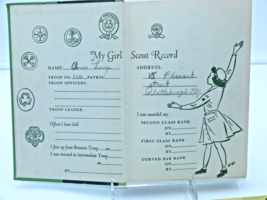 My Girl Scout Record
NAME
TROOP NO. 110 PATROL
TROOP OFFICERS:
TROOP LEADER:
Offices I have held
I flew up from Brownie Troop
I was invested in Intermediate Troop
BY
ADDRESS:
15 Pleasant
Street
I was awarded my:
SECOND CLASS RANK
ON
BY
FIRST CLASS RANK
ON
BY
CURVED BAR RANK
ON
BY